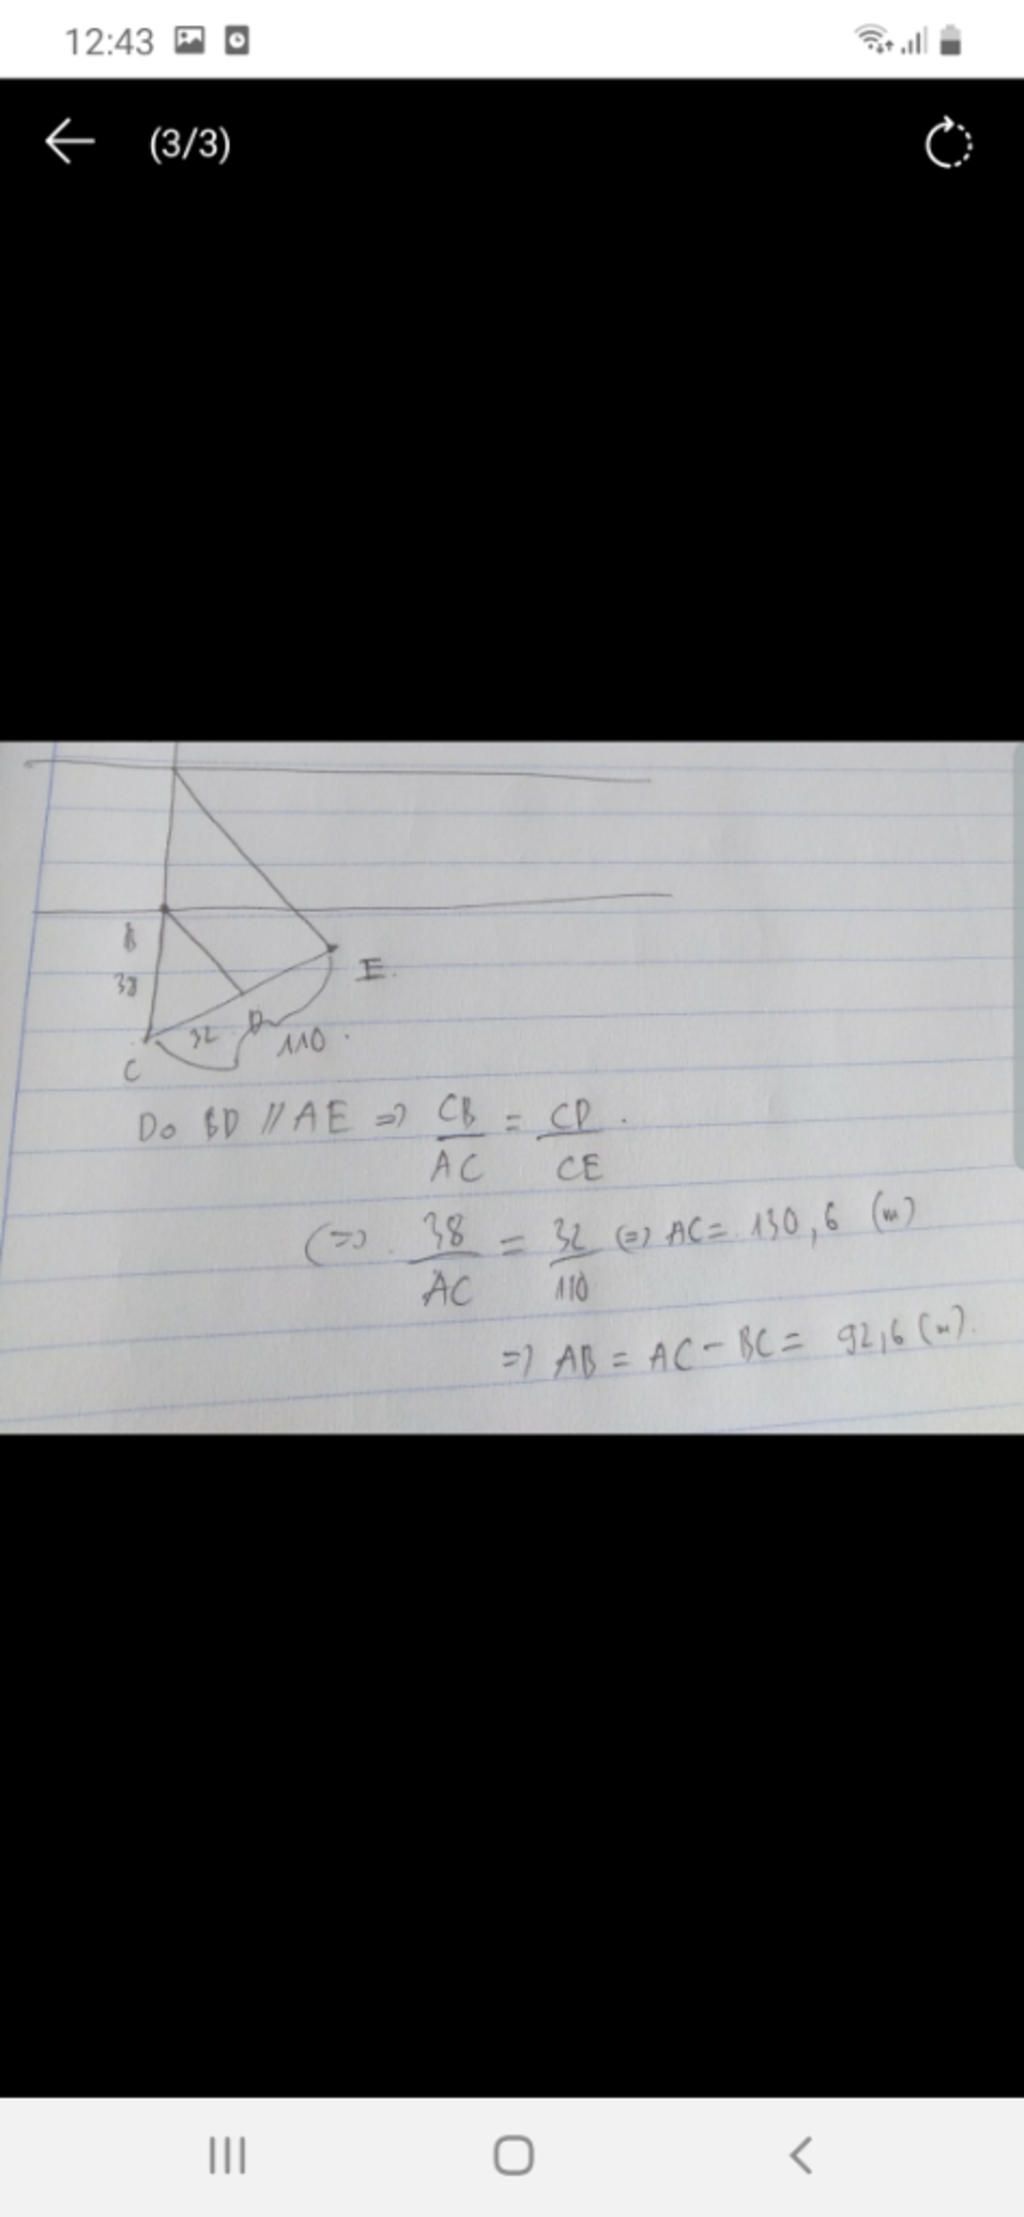 12:43
(3/3)
B
38
E.
32 D
110.
C
Do BD // AE => CB/AC = CD/CE.
(=> 38/AC = 32/110 (=) AC = 130,6 (m)
=> AB = AC - BC = 92,6 (m).